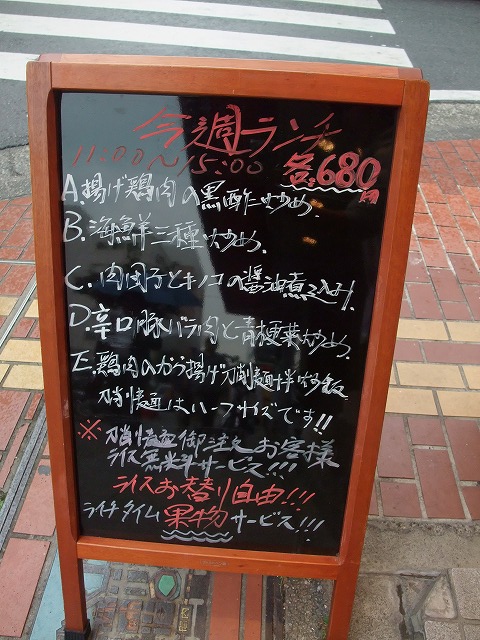 今週ランチ
11:00〜15:00 各680円
A.揚げ鶏肉の黒酢炒め.
B.海鮮三種炒め.
C.肉団子とキノコの醤油煮込み.
D.辛口豚バラ肉と青梗菜炒め.
E.鶏肉のから揚げ刀削麺+半炒飯
刀削麺はハーフサイズです!!
※刀削麺御注文お客様
ライス無料サービス!!!
ライスお替り自由!!!
ライチタイム果物サービス!!!